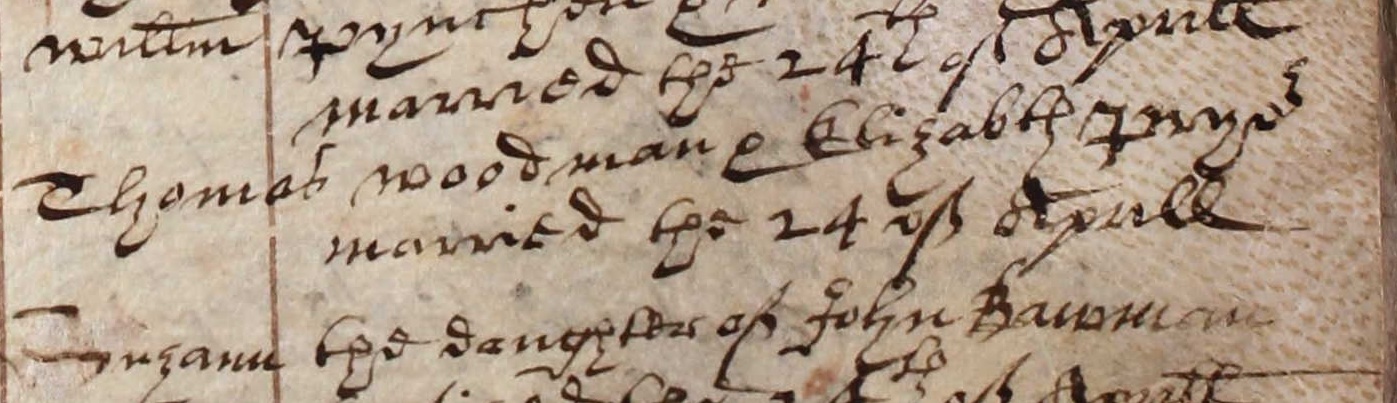 willm pynchen
married the 24th of Aprill
Thomas woodman & Elizabth
married the 24 of Aprill
the daughter of John Bawman
th of Aprill